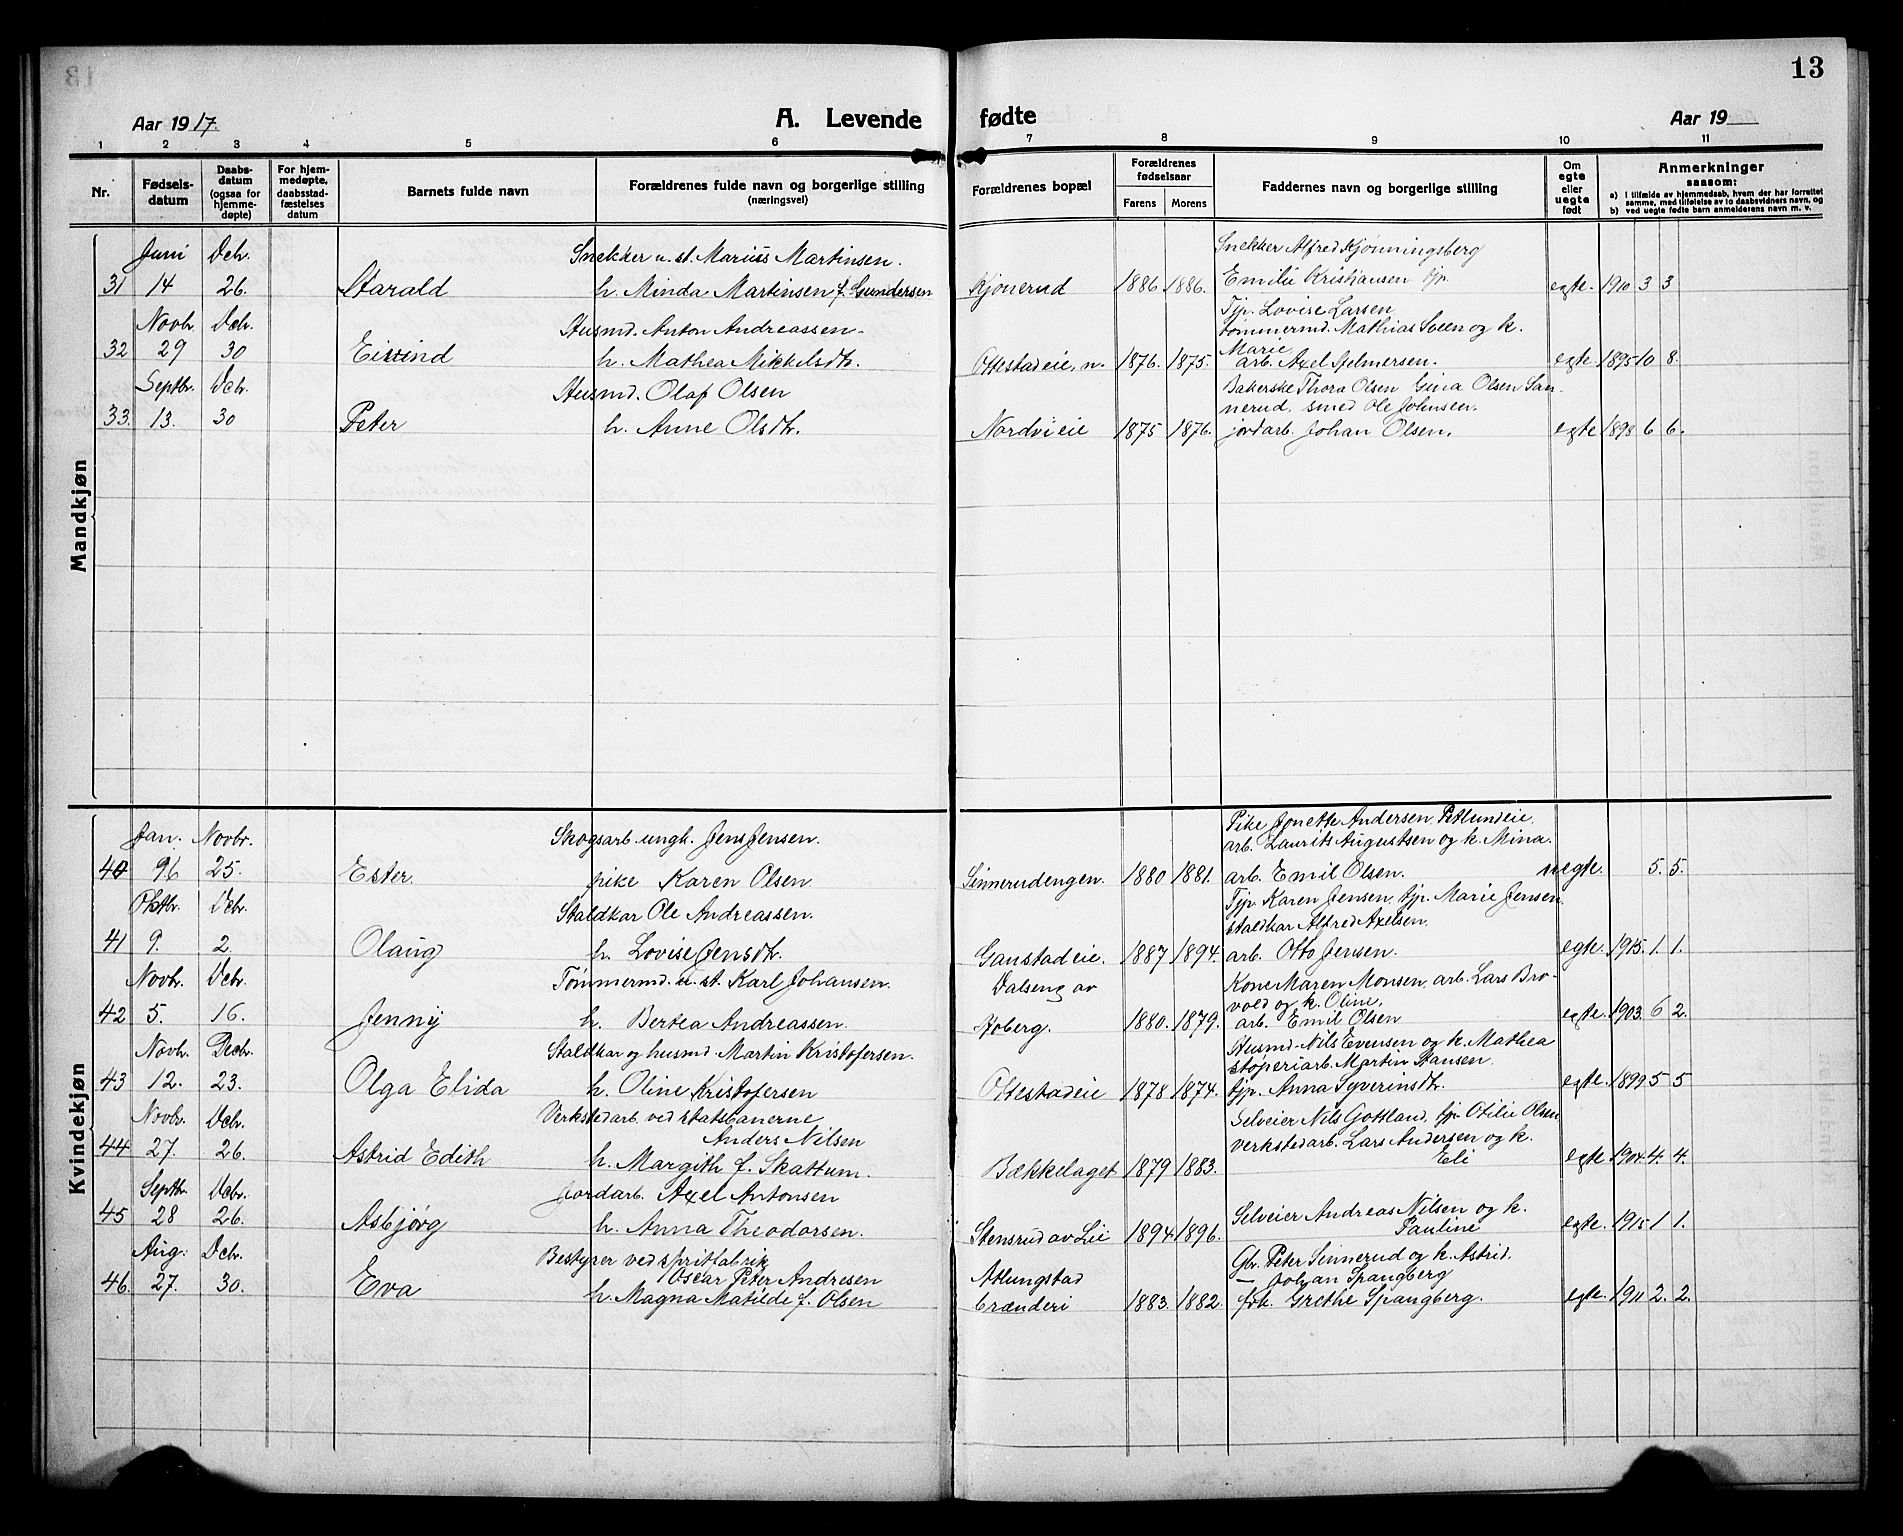 13
Aar 1917.
A. Levende fødte
Aar 19
1 2 3 4 5 6 7 8 9 10 11
Nr.
Fødsels-
datum
Daabs-
datum
(ogsaa for
hjemme-
døpte)
For hjem-
medøpte,
daabsstad-
fæstelses
datum
Barnets fulde navn
Forældrenes fulde navn og borgerlige stilling
(næringsvei)
Forældrenes bopæl
Forældrenes
fødselsaar
Farens Morens
Faddernes navn og borgerlige stilling
Om
egte
eller
uegte
født
Anmerkninger
saasom:
a) i tilfælde av hjemmedaab, hvem der har forrettet
samme, med tilføielse av to daabsvidners navn, og
b) ved uegte fødte barn anmelderens navn m. v.
Mandkjøn
Juni Dcbr. Snekker u. st. Marius Martinsen. Snekker Alfred Kjønningsberg
31 14 26. Harald h. Minda Martinsen f. Gundersen Kjønerud 1886 1886. Emilie Kristiansen tjp. egte. 1910 3 3
Tjp. Lovise Larsen
Novbr. Dcbr. Husmd. Anton Andreassen. tømmermd. Mathias Sveen og k.
Marie
32 29 30 Eivind h. Mathea Mikkelsdtr. Ottestadeie, n. 1876. 1875. arb. Axel Hjelmersen. egte. 1895 10 8.
Septbr. Dcbr. Husmd. Olaf Olsen Bakerske Thora Olsen Gina Olsen San-
nerud, smed Ole Johnsen,
33. 13. 30 Peter h. Anne Olsdtr. Nordvieie 1875 1876. jordarb. Johan Olsen. egte 1898 6 6.
Kvindekjøn
Pike Jonette Andersen,
Jan. Novbr. Skogsarb. ungk. Jens Jensen. arb. Laurits Augustsen og k. Mina.
40 96 25. Ester. pike Karen Olsen Sinnerudengen. 1880 1881. arb. Emil Olsen. uegte. 5. 5.
Oktbr. Dcbr. Staldkar Ole Andreassen. Tjp. Karen Jensen, tjp. Marie Jensen
staldkar Alfred Axelsen.
41 9. 2. Olaug h. Lovise Jensdtr. Ganstadeie. 1887 1894. arb. Otto Jensen. egte. 1915. 1. 1.
Novbr. Dcbr. Tømmermd. u. st. Karl Johansen. Dalseng av Kone Maren Monsen, arb. Lars Bro-
vold og k. Oline,
42 5. 16. Jenny h. Bertea Andreassen. Hoberg. 1880. 1879. arb. Emil Olsen egte. 1903. 6 2.
Novbr. Decbr. Staldkar og husmd. Martin Kristofersen. Husmd. Nils Evensen og k. Mathea
støperiarb. Martin Hansen.
43 12. 23. Olga Elida h. Oline Kristofersen Ottestadeie 1878 1874. tjp. Anna Syverinsdtr. egte. 1899. 5 5
Novbr. Dcbr. Verkstedarb. ved statsbanerne Selveier Nils Gottland, tjp. Otilie Olsen
Anders Nilsen verkstedarb. Lars Andersen og k.
44 27. 26. Astrid Edith h. Margith f. Skattum. Bækkelaget 1879 1883. Eli egte 1904. 4. 4.
Septbr. Dcbr. Jordarb. Axel Antonsen Selveier Andreas Nilsen og k.
45 28 26. Asbjørg h. Anna Theodorsen. Stensrud av Lie 1894 1896. Pauline egte. 1915 1 1.
Aug: Dcbr. Bestyrer ved spritfabrik Gbr. Peter Sinnerud og k. Astrid.
Oscar Peter Andresen Atlungstad — Johan Spangberg
46. 27. 30. Eva h. Magna Matilde f. Olsen brænderi 1883. 1882. frk. Grethe Spangberg. egte. 1911 2. 2.